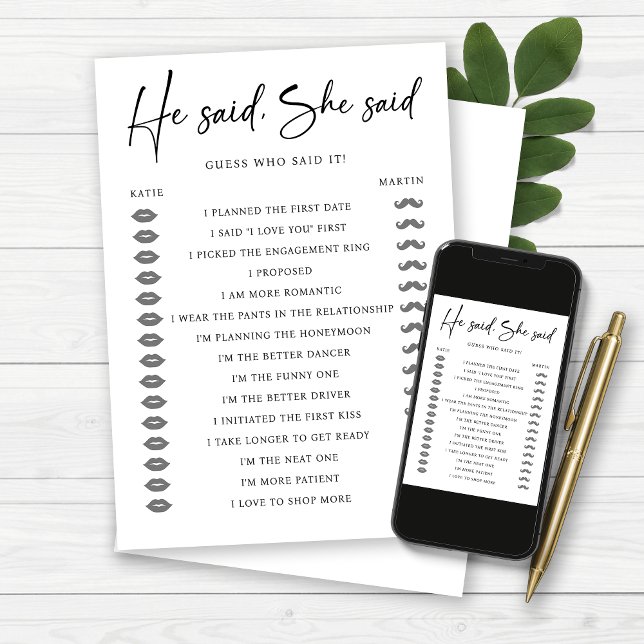 He said, She said
GUESS WHO SAID IT!
KATIE MARTIN
I PLANNED THE FIRST DATE
I SAID "I LOVE YOU" FIRST
I PICKED THE ENGAGEMENT RING
I PROPOSED
I AM MORE ROMANTIC
I WEAR THE PANTS IN THE RELATIONSHIP
I'M PLANNING THE HONEYMOON
I'M THE BETTER DANCER
I'M THE FUNNY ONE
I'M THE BETTER DRIVER
I INITIATED THE FIRST KISS
I TAKE LONGER TO GET READY
I'M THE NEAT ONE
I'M MORE PATIENT
I LOVE TO SHOP MORE
He said, She said
GUESS WHO SAID IT!
KATIE MARTIN
I PLANNED THE FIRST DATE
I SAID "I LOVE YOU" FIRST
I PICKED THE ENGAGEMENT RING
I PROPOSED
I AM MORE ROMANTIC
I WEAR THE PANTS IN THE RELATIONSHIP
I'M PLANNING THE HONEYMOON
I'M THE BETTER DANCER
I'M THE FUNNY ONE
I'M THE BETTER DRIVER
I INITIATED THE FIRST KISS
I TAKE LONGER TO GET READY
I'M THE NEAT ONE
I'M MORE PATIENT
I LOVE TO SHOP MORE